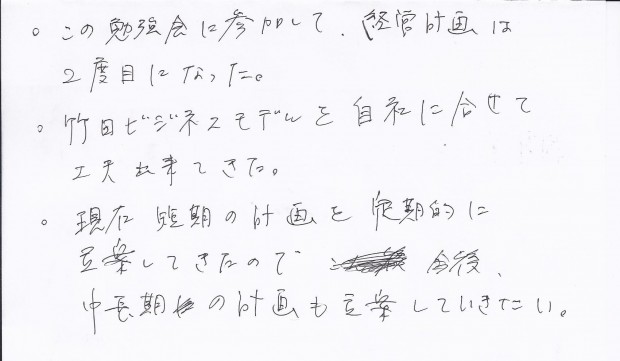 。この勉強会に参加して、経営計画は
２度目になった。
。竹田ビジネスモデルを自社に合せて
工夫出来てきた。
。現在 短期の計画を定期的に
立案してきたので 今後、
中長期の計画も立案していきたい。